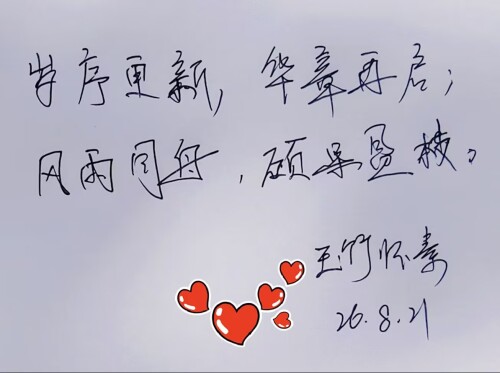 岁序更新，华章再启；
风雨同舟，硕果盈枝。
玉竹怀素
26.8.21